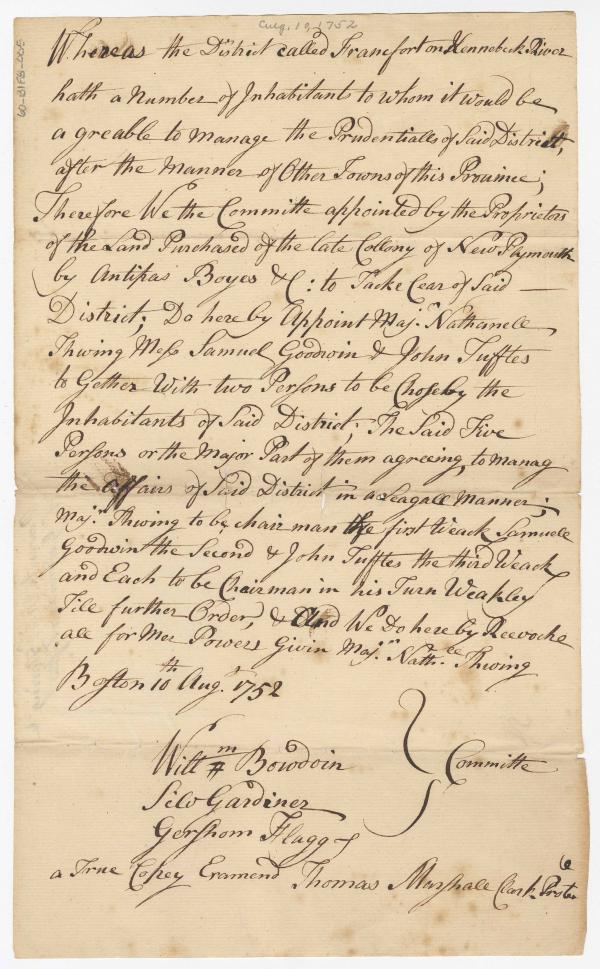 Aug. 10, 1752
Whereas the District called Francfort on Kennebeck River
hath a Number of Inhabitants to whom it would be
agreable to manage the Prudentialls of Said District,
after the Manner of Other Towns of this Province;
Therefore We the Committe appointed by the Proprietors
of the Land Purchased of the late Collony of New Plymouth
by Antipas Boyes &C: to Tacke Cear of Said —
District; Do here by Appoint Maj.r Nathanell
Thwing Mess Samuel Goodwin & John Tufftes
to Gether With two Persons to be Chose by the
Inhabitants of Said District; The Said Five
Persons or the Major Part of them agreeing, to manag
the affairs of Said District in a Leagall Manner;
Maj.r Thwing to be chair man the first Weack Samuell
Goodwin the Second & John Tufftes the third Weack
and Each to be Chairman in his Turn Weakley
Till further Order, & And We Do here by Reevocke
all for Mer Powers Givin Maj.r Nath.ll Thwing
Boston 10th Aug.t 1752
Willm Bowdoin
Committe
Silv Gardiner
Gershom Flagg
a True Copey Exramend Thomas Marshall Clark